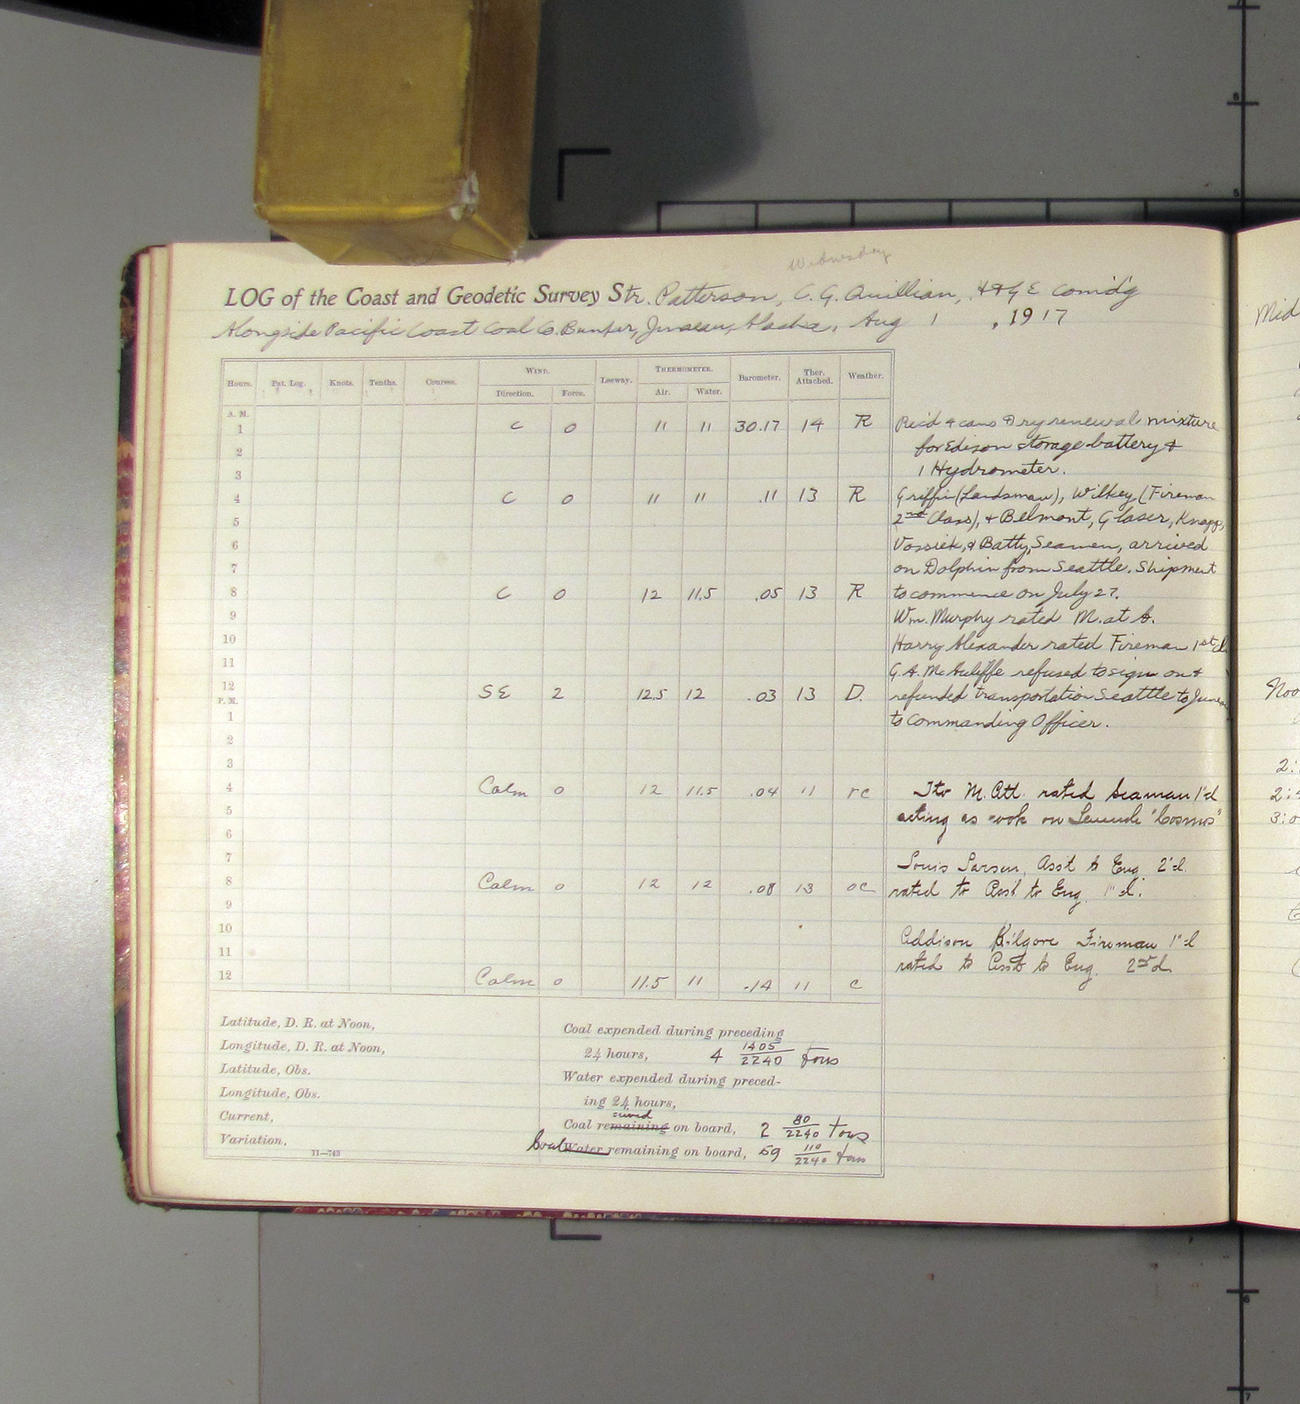 Wednesday
LOG of the Coast and Geodetic Survey Str. Patterson, C. G. Quillian, H & G E Comd'g
Alongside Pacific Coast Coal Co. Bunker, Juneau, Alaska, Aug 1, 1917
Hours. Pat. Log. Knots. Tenths. Courses. WIND. Leeway. THERMOMETER. Barometer. Ther. Attached. Weather.
Direction. Force. Air. Water.
A. M.
1 C 0 11 11 30.17 14 R
2
3
4 C 0 11 11 .11 13 R
5
6
7
8 C 0 12 11.5 .05 13 R
9
10
11
12 SE 2 12.5 12 .03 13 D.
P. M.
1
2
3
4 Calm 0 12 11.5 .04 11 rc
5
6
7
8 Calm 0 12 12 .08 13 oc
9
10
11
12 Calm 0 11.5 11 .14 11 c
Rec'd 4 cans Dry renewal mixture
for Edison storage battery &
1 Hydrometer.
Griffin (Landsman), Wilkey (Fireman
2nd Class), & Belmont, Glaser, Knapp,
& Batty, Seamen, arrived
on Dolphin from Seattle. Shipment
to commence on July 27.
Wm. Murphy rated M. at A.
Harry Alexander rated Fireman 1st cl
G. A. McAuliffe refused to sign on &
refunded transportation Seattle to Juneau
to Commanding Officer.
rated Seaman 1 cl
acting as cook on Launch "Cosmos"
Louis Larsen, Asst to Eng 2 cl
rated to Asst to Eng. 1 cl.
Addison Kilgore Fireman 1 cl
rated to Asst to Eng. 2nd cl.
Latitude, D. R. at Noon,
Longitude, D. R. at Noon,
Latitude, Obs.
Longitude, Obs.
Current,
Variation,
11—743
Coal expended during preceding
24 hours, 4 1405/2240 Tons
Water expended during preced-
ing 24 hours,
ceived
Coal remaining on board, 2 80/2240 Tons
Coal Water remaining on board, 59 110/2240 tons
Mid
Noo
2:
2:
3:0